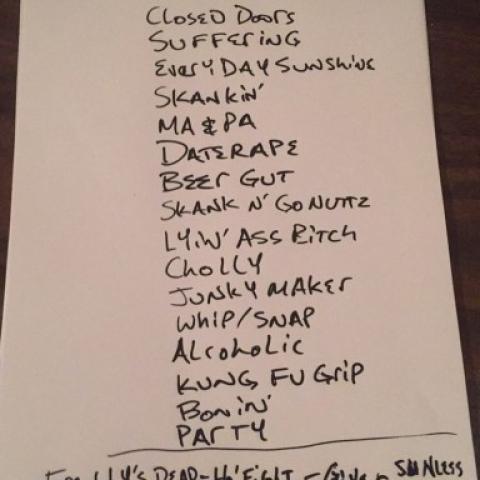 CLOSED DOORS
SUFFERING
EVERYDAY SUNSHINE
SKANKIN'
MA & PA
DATERAPE
BEER GUT
SKANK N' GO NUTTZ
LYIN' ASS BITCH
CHOLLY
JUNKY MAKER
WHIP/SNAP
ALCOHOLIC
KUNG FU GRIP
BONIN'
PARTY
SUNLESS